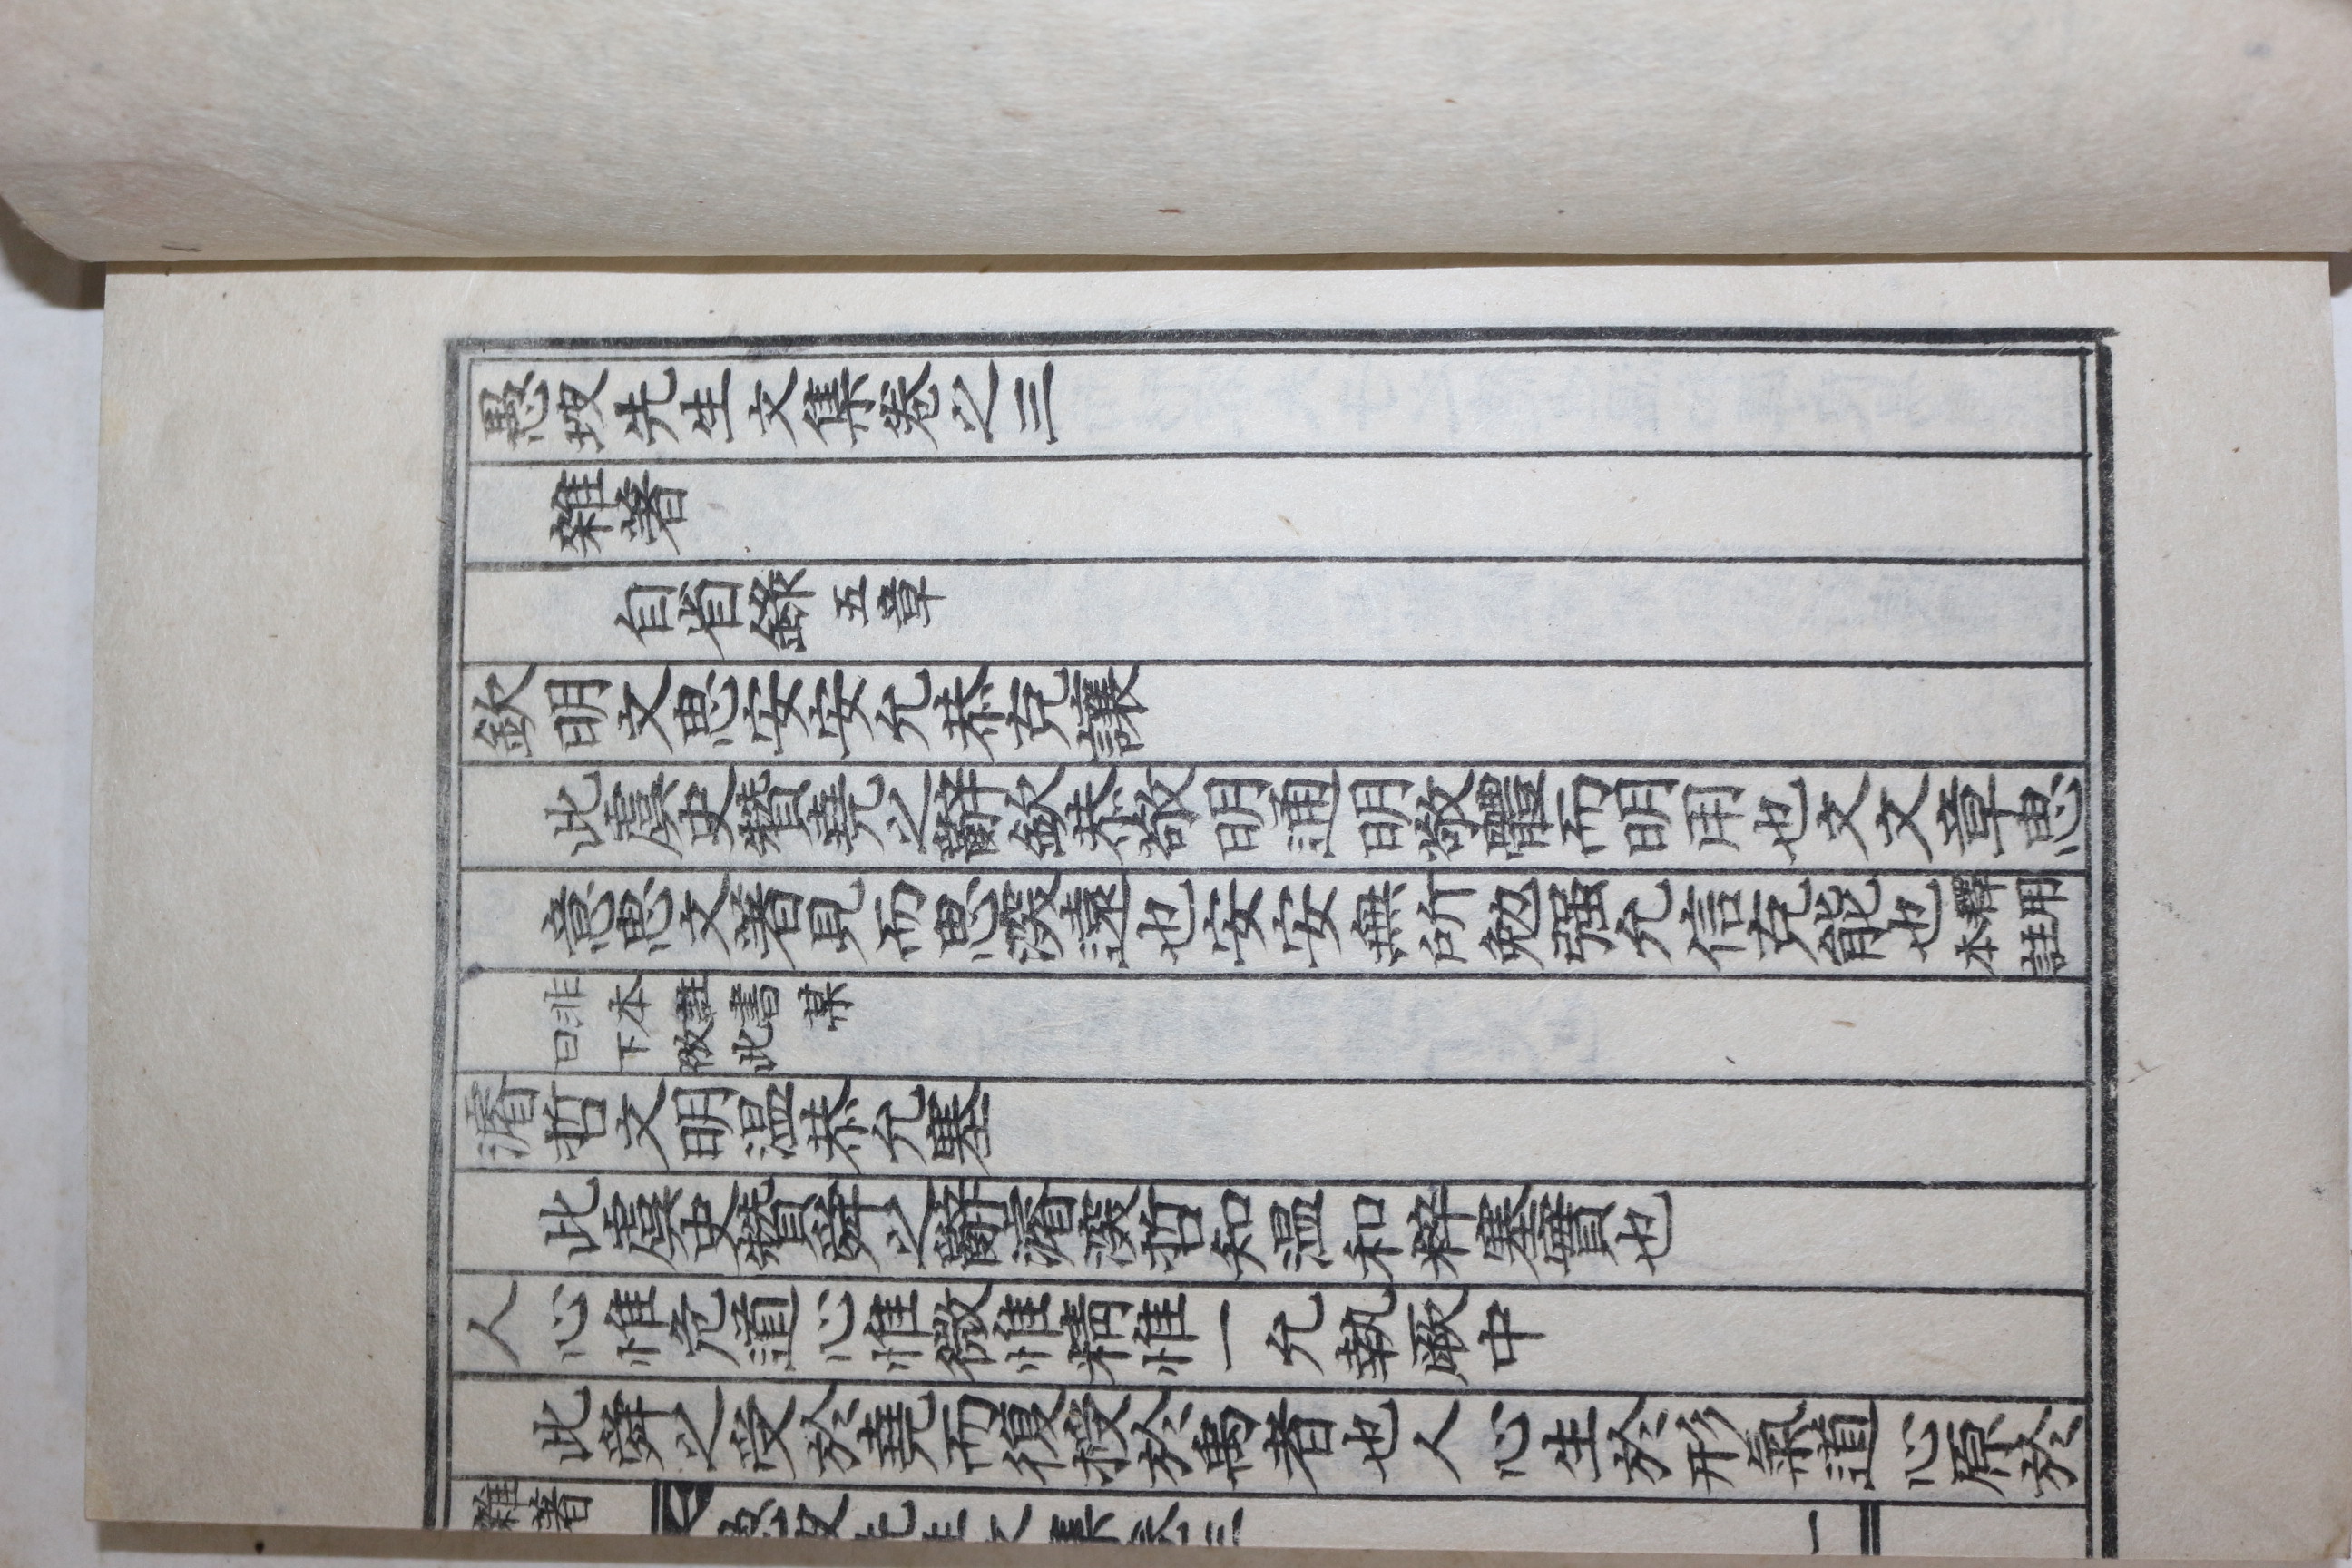 愚坡先生文集卷之三
雜著
自省錄 五章
欽明文思安安允恭克讓
此虞史贊堯之辭欽恭敬明通明敬體而明用也文文章思
意思文著見而思深遠也安安無所勉强允信克能也 釋用本註
非本註書某曰下倣此
濬哲文明温恭允塞
此虞史贊舜之辭濬深哲知温和粹塞實也
人心惟危道心惟微惟精惟一允執厥中
此舜之受於堯而復授於禹者也人心生於形氣道心原於
雜著 愚坡先生文集卷三 一